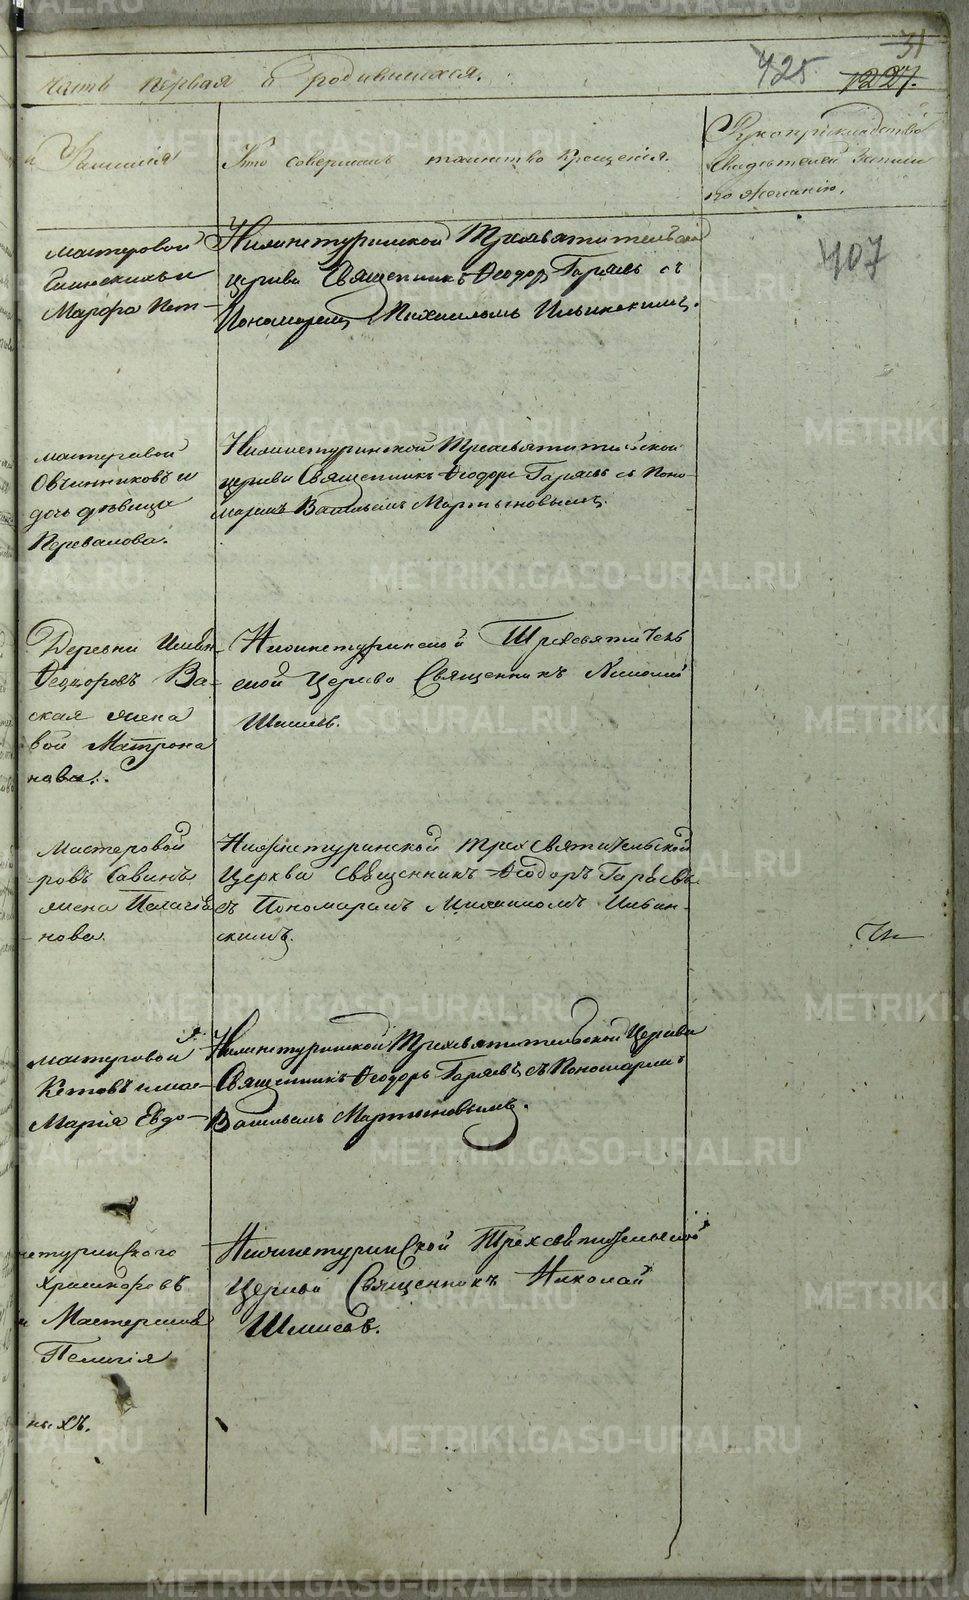 31
425
1227.
Часть первая о родившихся.
Фамилія
Кто совершалъ таинство крещенія.
Рукоприкладство
свидѣтелей записи
по желанію.
407
мастеровой
Марфа Пет-
Нижнетуринской Трехсвятительской
церкви Священникъ Ѳеодоръ Гаряевъ съ
Пономаремъ Михаиломъ Ильинскимъ.
мастеровой
Овчинниковъ и
дочь дѣвица
Перевалова.
Нижнетуринской Трехсвятительской
церкви Священникъ Ѳеодоръ Гаряевъ съ Поно-
маремъ Васильемъ Мартыновымъ.
Деревни Имян-
Ѳедоровъ Ва-
ская жена
вой Матрона
нова.
Нижнетуринской Трехсвятитель
ской Церкви Священникъ Николай
Шишевъ.
Мастеровой
ровъ Савинъ
жена Пелагія
нова.
Нижнетуринской Трехсвятительской
Церкви священникъ Ѳеодоръ Гаряевъ
съ Пономаремъ Михаиломъ Ильин-
скимъ.
мастеровой
Кетовъ и жена
Марія Евдо-
Нижнетуринской Трехсвятительской Церкви
Священникъ Ѳеодоръ Гаряевъ съ Пономаремъ
Васильемъ Мартыновымъ.
нетуринского
и Мастерская
Пелагія
ныхъ.
Нижнетуринской Трехсвятительской
Церкви Священникъ Николай
Шишевъ.
METRIKI.GASO-URAL.RU